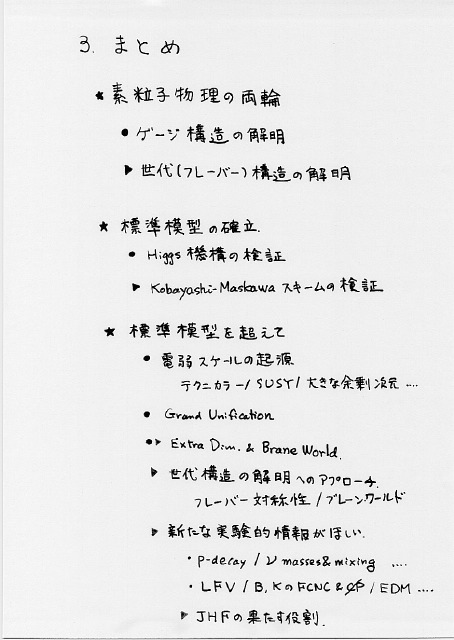 3. まとめ
★ 素粒子物理の両輪
● ゲージ構造の解明
▶ 世代(フレーバー)構造の解明
★ 標準模型の確立.
● Higgs 機構の検証
▶ Kobayashi-Maskawa スキームの検証
★ 標準模型を超えて
● 電弱スケールの起源
テクニカラー/ SUSY/ 大きな余剰次元 ....
● Grand Unification
●▶ Extra Dim. & Brane World.
▶ 世代構造の解明へのアプローチ.
フレーバー対称性/ブレーンワールド
▶ 新たな実験的情報がほしい.
・ p-decay / ν masses & mixing ....
・ LFV / B, K の FCNC & C̸P̸ / EDM ....
▶ JHFの果たす役割.